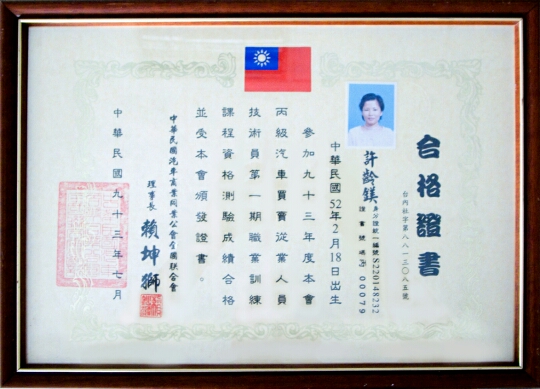 合格證書
台內社字第八八一三〇八五號
許齡鎂
身分證統一編號S220148232
證書號碼丙00079
中華民國52年2月18日出生
參加九十三年度本會
丙級汽車買賣從業人員
技術員第一期職業訓練
課程資格測驗成績合格
並受本會頒發證書。
中華民國汽車商業同業公會全國聯合會
理事長 賴坤獅
中華民國九十三年七月